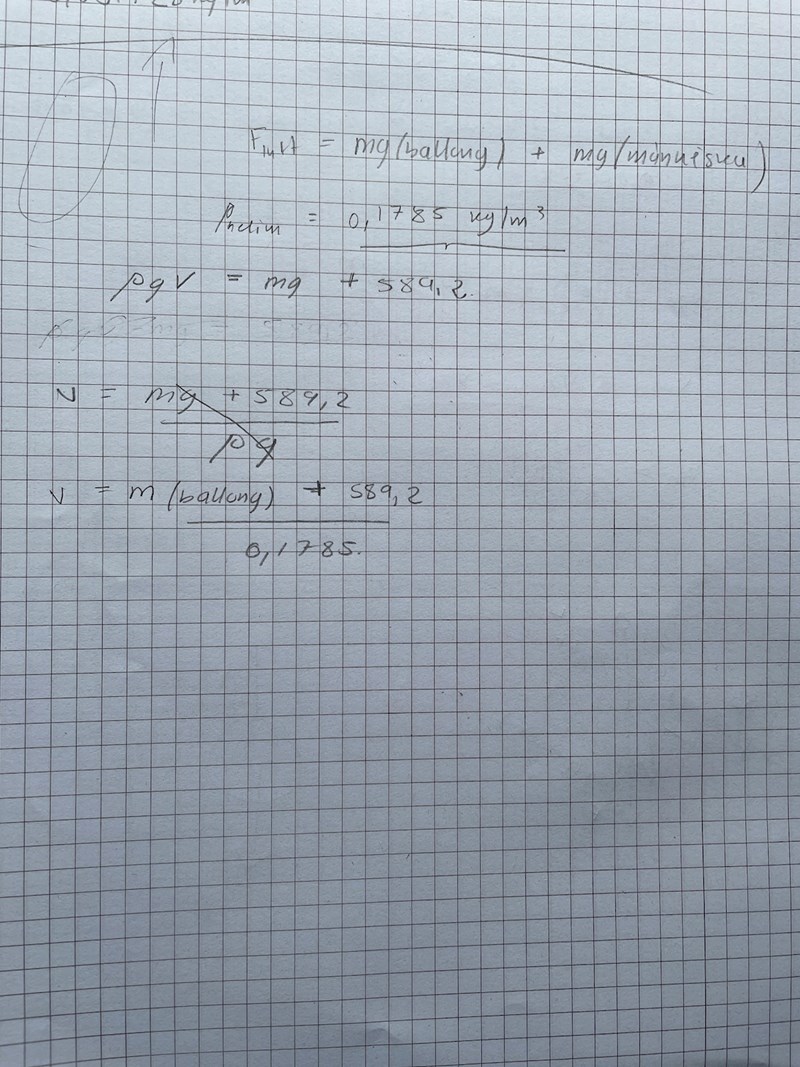 F_lyft = mg (ballong) + mg (människa)
ρ_helium = 0,1785 kg/m³
ρgV = mg + 589,2
V = mg + 589,2
ρg
V = m (ballong) + 589,2
0,1785.